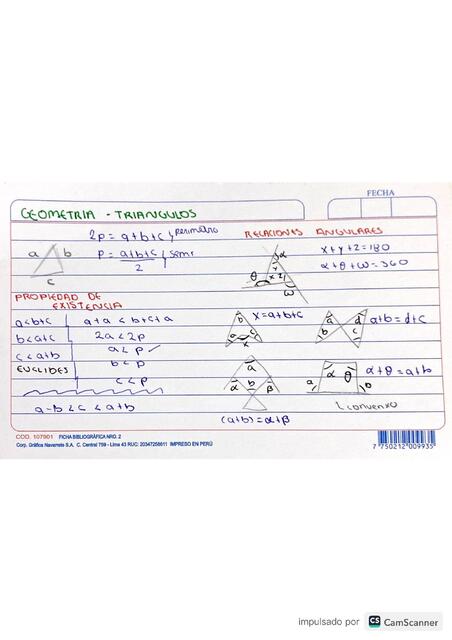 FECHA
GEOMETRIA - TRIANGULOS
2p = a+b+c } perimetro
a b
c
p = a+b+c / 2 } semi
PROPIEDAD DE
EXISTENCIA
a<b+c
b<a+c
c<a+b
a+a<b+c+a
2a<2p
a<p ✓
b<p
c<p
EUCLIDES
a-b<c<a+b
RELACIONES ANGULARES
θ α ω
x y z
x+y+z=180
α+θ+ω=360
a b c x
x=a+b+c
a b c d
a+b=d+c
α a b β
(a+b)=α+β
a α θ b
α+θ=a+b
convexo
COD. 107901 FICHA BIBLIOGRÁFICA NRO. 2
Corp. Gráfica Navarrete S.A. C. Central 759 - Lima 43 RUC: 20347258611 IMPRESO EN PERÚ
7 750212 009935
impulsado por CS CamScanner